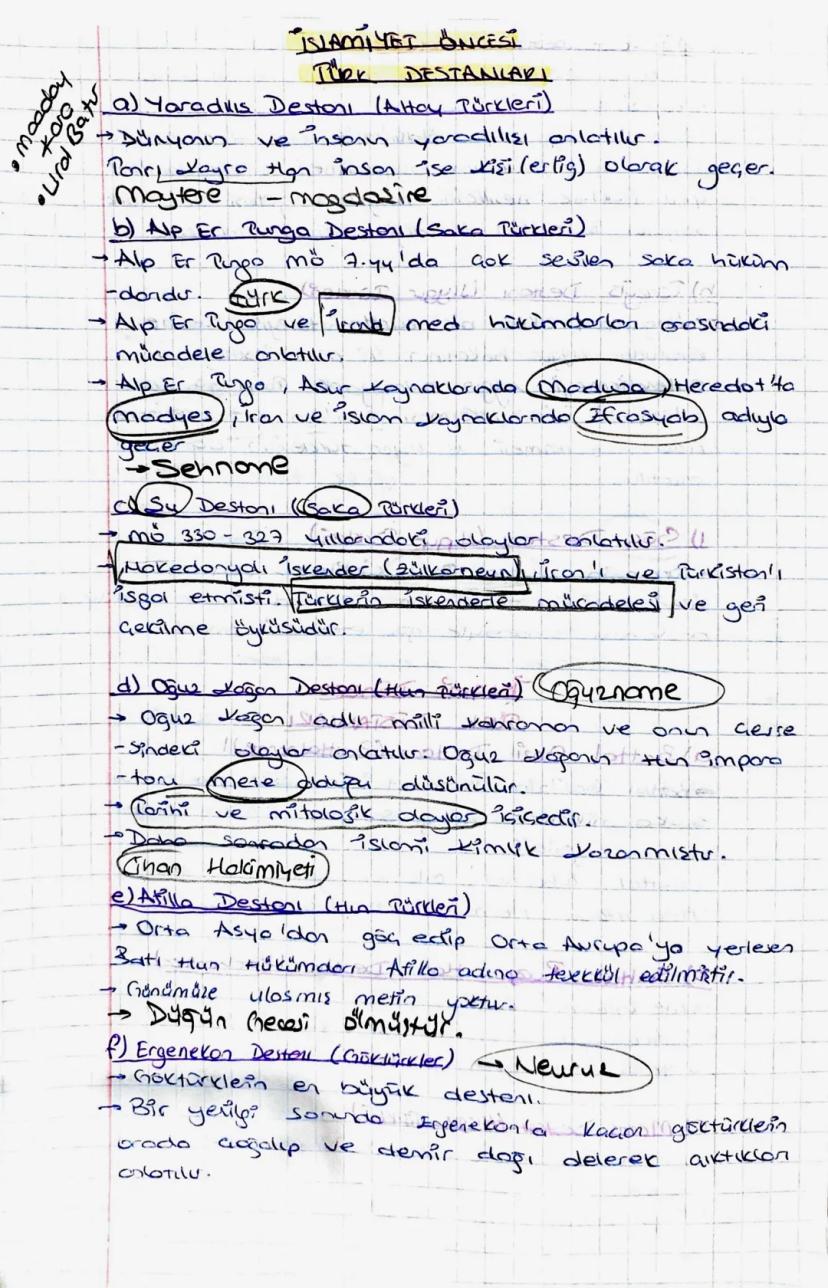 İSLAMİYET ÖNCESİ
TÜRK DESTANLARI
• Maaday
Kara
• Ural Batır
a) Yaradılış Destanı (Altay Türkleri)
→ Dünyanın ve insanın yaradılışı anlatılır.
Tanrı, Kayra Han insan ise kişi (erlig) olarak geçer.
Maytere – magdaşire
b) Alp Er Tunga Destanı (Saka Türkleri)
→ Alp Er Tunga mö 7.yy'da çok sevilen saka hüküm
-darıdır. Türk
→ Alp Er Tunga ve İranlı med hükümdarları arasındaki
mücadele anlatılır.
→ Alp Er Tunga, Asur kaynaklarında Maduva, Heredot'ta
Madyes, İran ve İslam kaynaklarında Efrasyab adıyla
geçer
→ Şehname
c) Şu Destanı (Saka Türkleri)
→ mö 330-327 yıllarındaki olaylar anlatılır.
→ Makedonyalı İskender (Zülkarneyn), İran'ı ve Türkistan'ı
işgal etmişti. Türklerin İskenderle mücadelesi ve geri
çekilme öyküsüdür.
d) Oğuz Kağan Destanı (Hun Türkleri) Oğuzname
→ Oğuz Kağan adlı milli kahraman ve onun çevre
-sindeki olaylar anlatılır. Oğuz Kağanın Hun impara
-toru mete olduğu düşünülür.
→ Tarihi ve mitolojik olaylar içiçedir.
→ Daha sonradan islami kimlik kazanmıştır.
Cihan Hakimiyeti
e) Atilla Destanı (Hun Türkleri)
→ Orta Asya'dan göç edip Orta Avrupa'ya yerleşen
Batı Hun Hükümdarı Atilla adına teşekkül edilmiştir.
→ Günümüze ulaşmış metin yoktur.
→ Düğün Gecesi ölmüştür.
f) Ergenekon Destanı (Göktürkler) → Nevruz
→ Göktürklerin en büyük destanı.
→ Bir yenilgi sonunda Ergenekonla kaçan göktürklerin
orada çoğalıp ve demir dağı delerek çıktıkları
anlatılır.